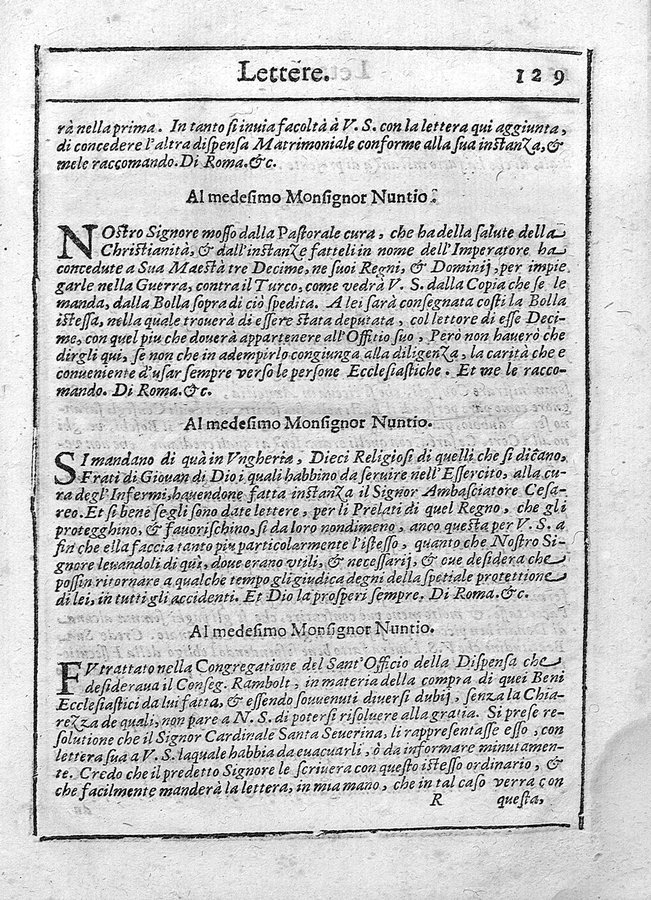 Lettere. 129
rà nella prima. In tanto si inuia facoltà à V. S. con la lettera qui aggiunta,
di concedere l'altra dispensa Matrimoniale conforme alla sua instanza, &
mele raccomando. Di Roma. &c.
Al medesimo Monsignor Nuntio.
NOstro Signore mosso dalla Pastorale cura, che ha della salute della
Christianità, & dall'instanze fatteli in nome dell'Imperatore ha
concedute a Sua Maestà tre Decime, ne suoi Regni, & Dominij, per impie
garle nella Guerra, contra il Turco, come vedrà V. S. dalla Copia che se le
manda, dalla Bolla sopra di ciò spedita. A lei sarà consegnata costì la Bolla
istessa, nella quale trouerà di essere stata deputata, col lettore di esse Deci-
me, con quel piu che douerà appartenere all'Offitio suo, Però non hauerò che
dirgli qui, se non che in adempirlo congiunga alla diligenza, la carità che e
conueniente d'usar sempre verso le persone Ecclesiastiche. Et me le racco-
mando. Di Roma. &c.
Al medesimo Monsignor Nuntio.
SI mandano di quà in Vngheria, Dieci Religiosi di quelli che si dicano,
Frati di Giouan di Dio i quali habbino da seruire nell'Essercito, alla cu-
ra degl'Infermi, hauendone fatta instanza il Signor Ambasciatore Cesa-
reo. Et si bene segli sono date lettere, per li Prelati di quel Regno, che gli
protegghino, & fauorischino, si da loro nondimeno, anco questa per V. S. a
fin che ella faccia tanto piu particolarmente l'istesso, quanto che Nostro Si-
gnore leuandoli di quì, doue erano vtili, & necessarij, & oue desidera che
possin ritornare a qualche tempo gli giudica degni della spetiale protettione
di lei, in tutti gli accidenti. Et Dio la prosperi sempre. Di Roma. &c.
Al medesimo Monsignor Nuntio.
FV trattato nella Congregatione del Sant'Officio della Dispensa che
desideraua il Conseg. Rambolt, in materia della compra di quei Beni
Ecclesiastici da lui fatta, & essendo souuenuti diuersi dubij, senza la Chia-
rezza de quali, non pare a N. S. di potersi risoluere alla gratia. Si prese re-
solutione che il Signor Cardinale Santa Seuerina, li rappresentasse esso, con
lettera sua a V. S. laquale habbia da euacuarli, ò da informare minutamen-
te. Credo che il predetto Signore le scriuerà con questo istesso ordinario, &
che facilmente manderà la lettera, in mia mano, che in tal caso verra con
R questa,